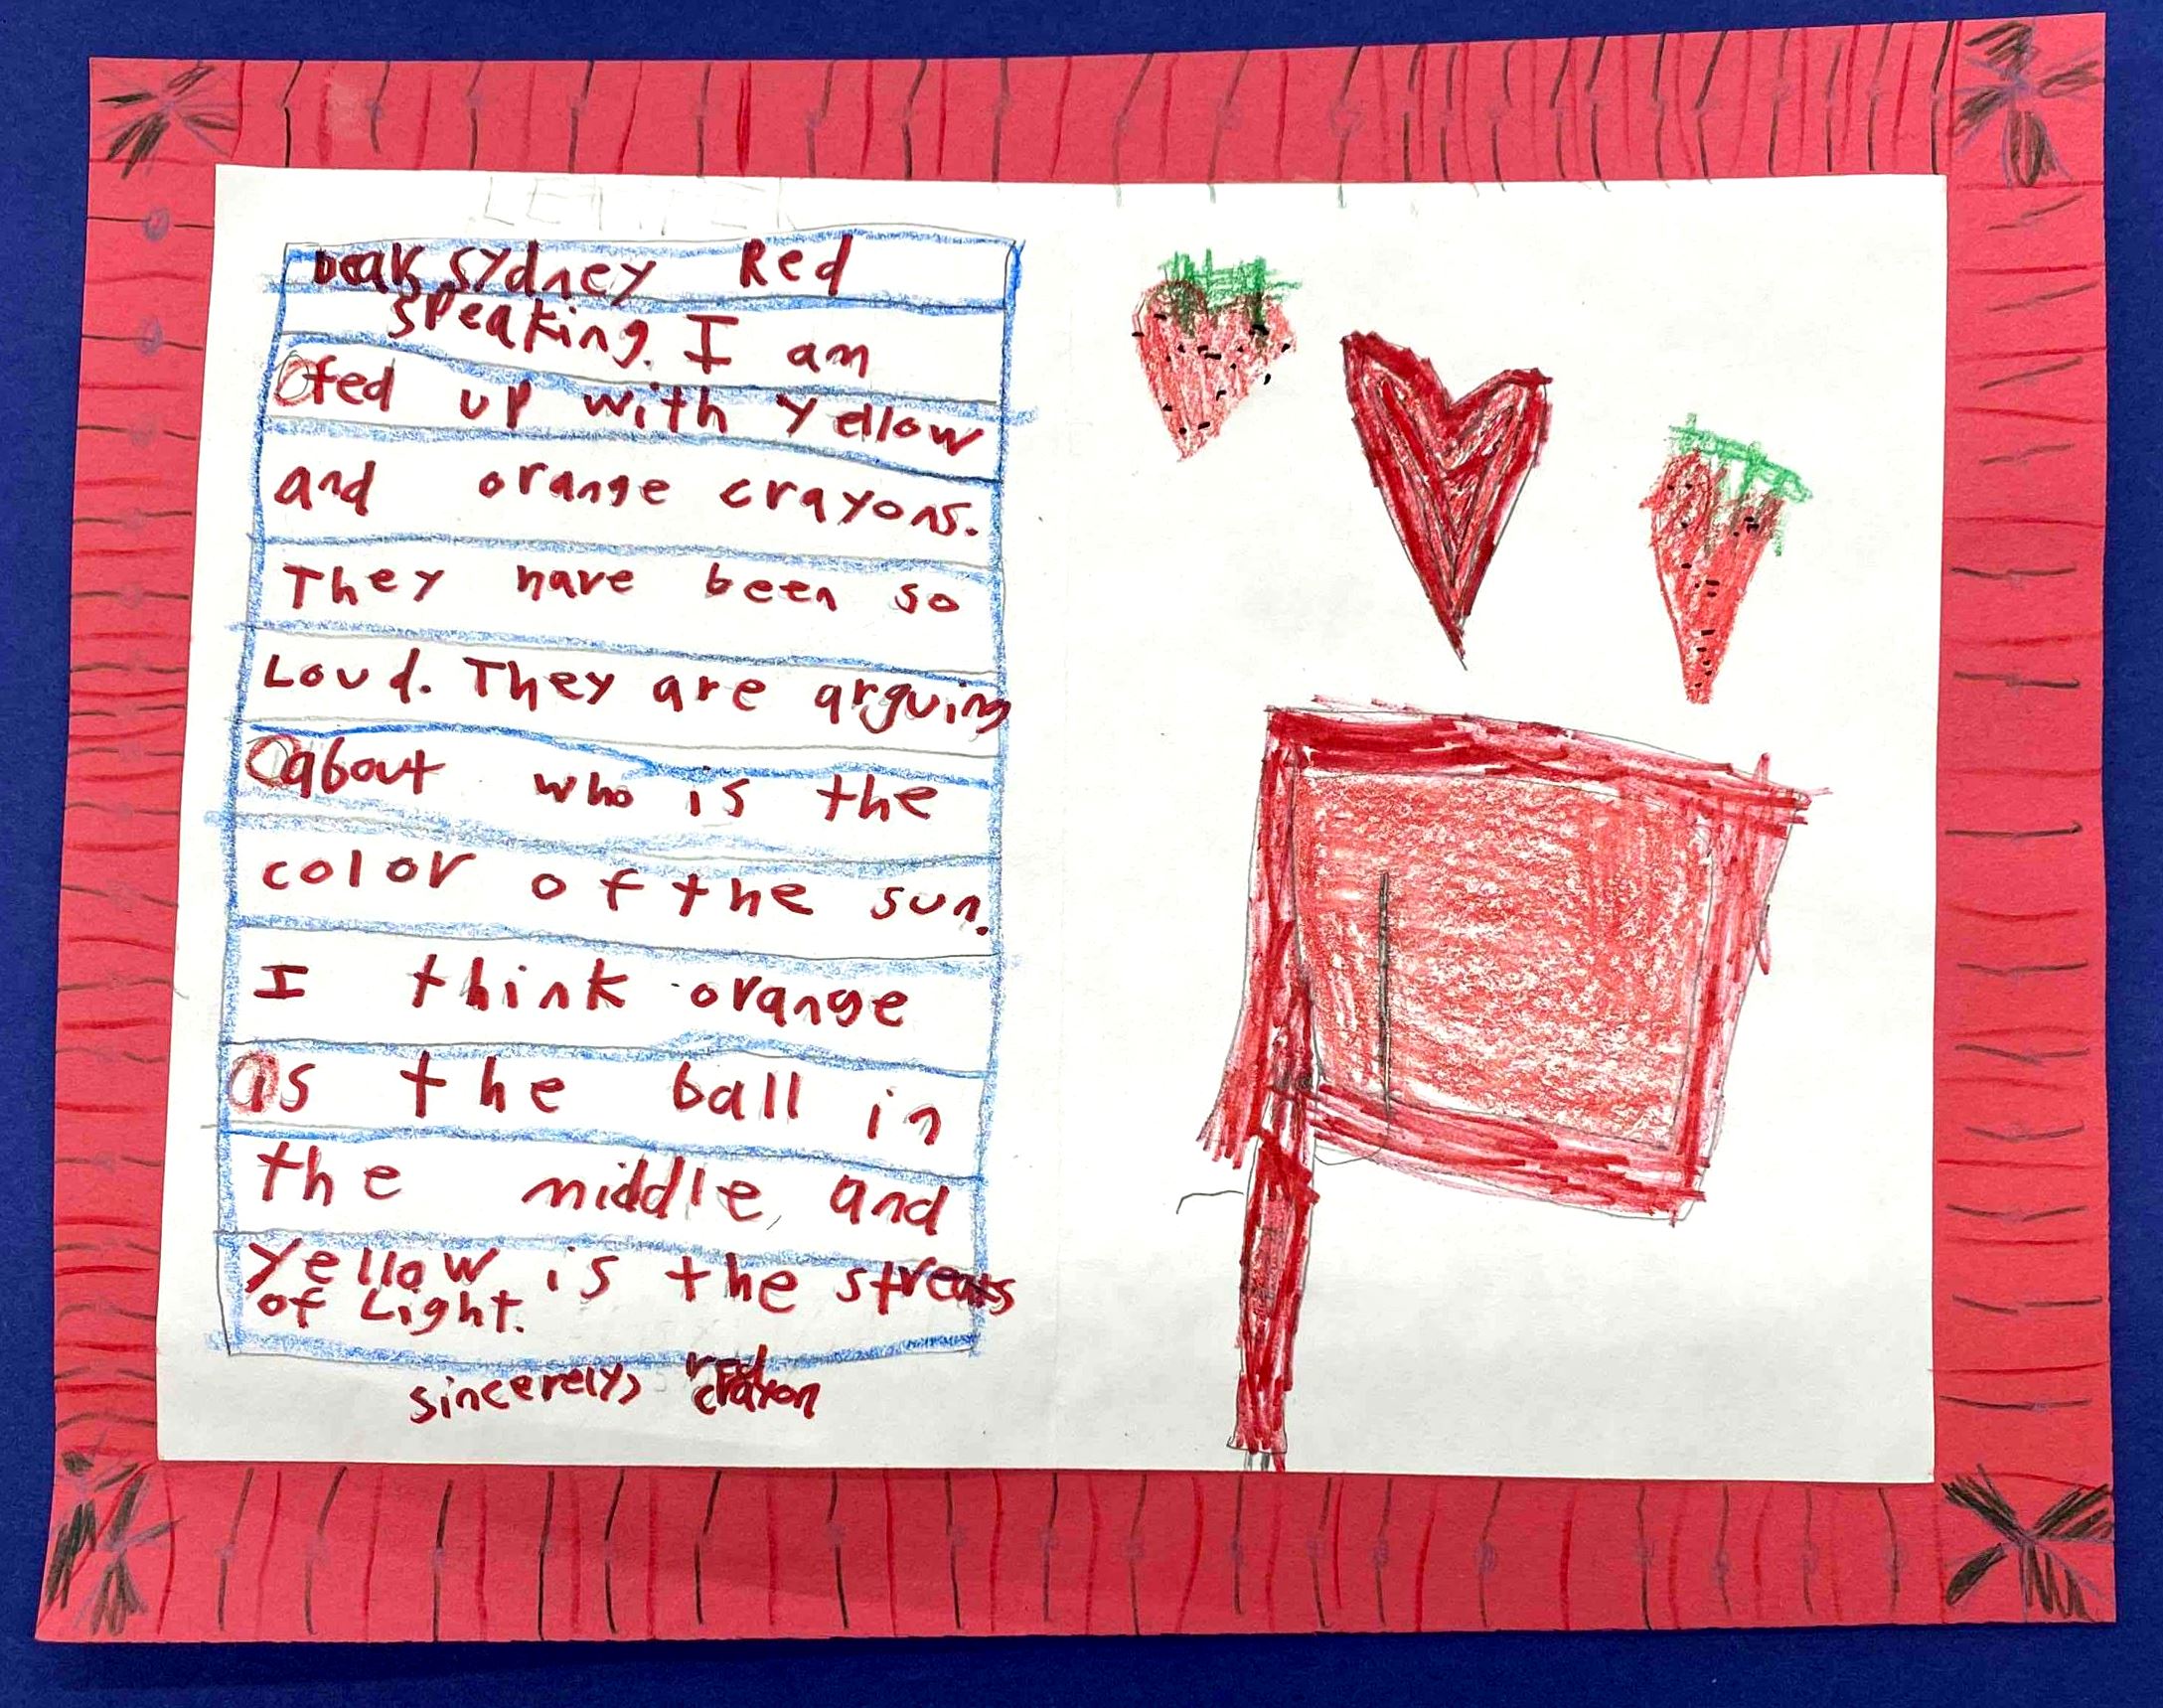 Dear Sydney Red
speaking. I am
fed up with yellow
and orange crayons.
They have been so
Loud. They are arguing
about who is the
color of the sun.
I think orange
is the ball in
the middle, and
Yellow is the streaks
of Light.
sincerely, red
crayon